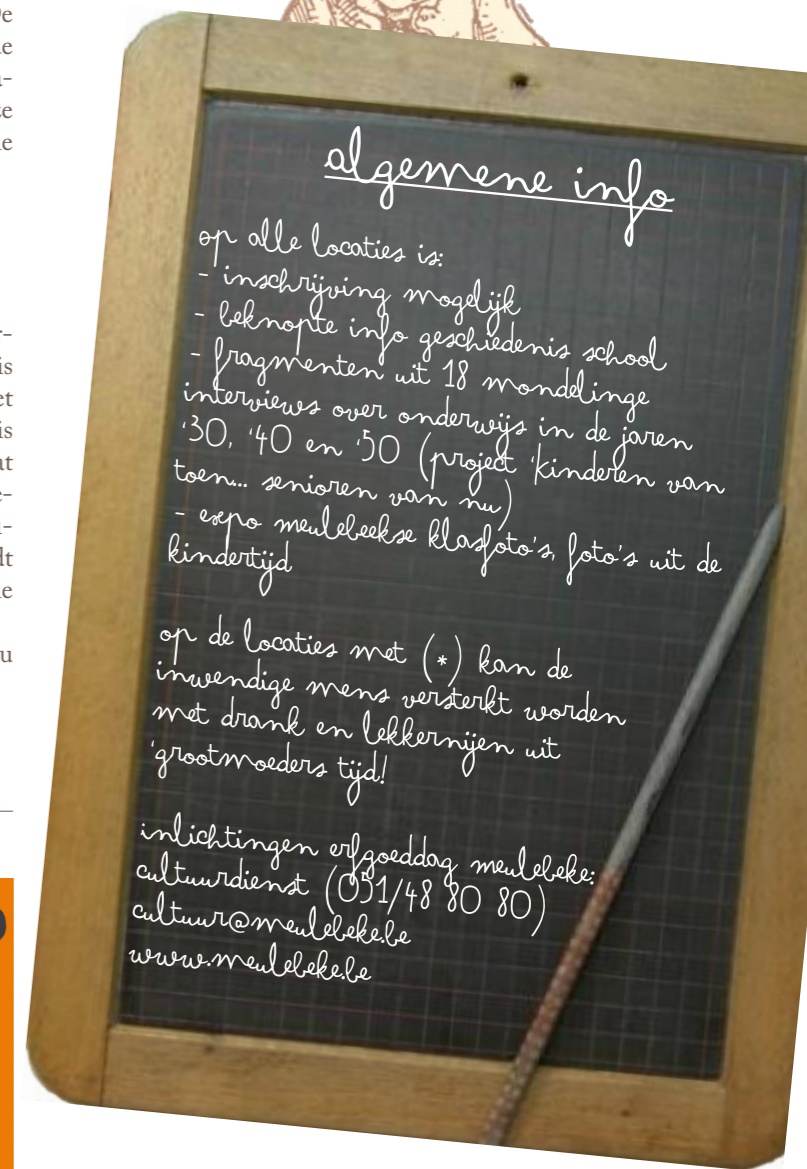 algemene info
op alle locaties is:
- inschrijving mogelijk
- beknopte info geschiedenis school
- fragmenten uit 18 mondelinge
interviews over onderwijs in de jaren
'30, '40 en '50 (project 'kinderen van
toen... senioren van nu)
- expo meulebeekse klasfoto's, foto's uit de
kindertijd
op de locaties met (*) kan de
inwendige mens versterkt worden
met drank en lekkernijen uit
'grootmoeders tijd!
inlichtingen erfgoeddag meulebeke:
cultuurdienst (051/48 80 80)
cultuur@meulebeke.be
www.meulebeke.be